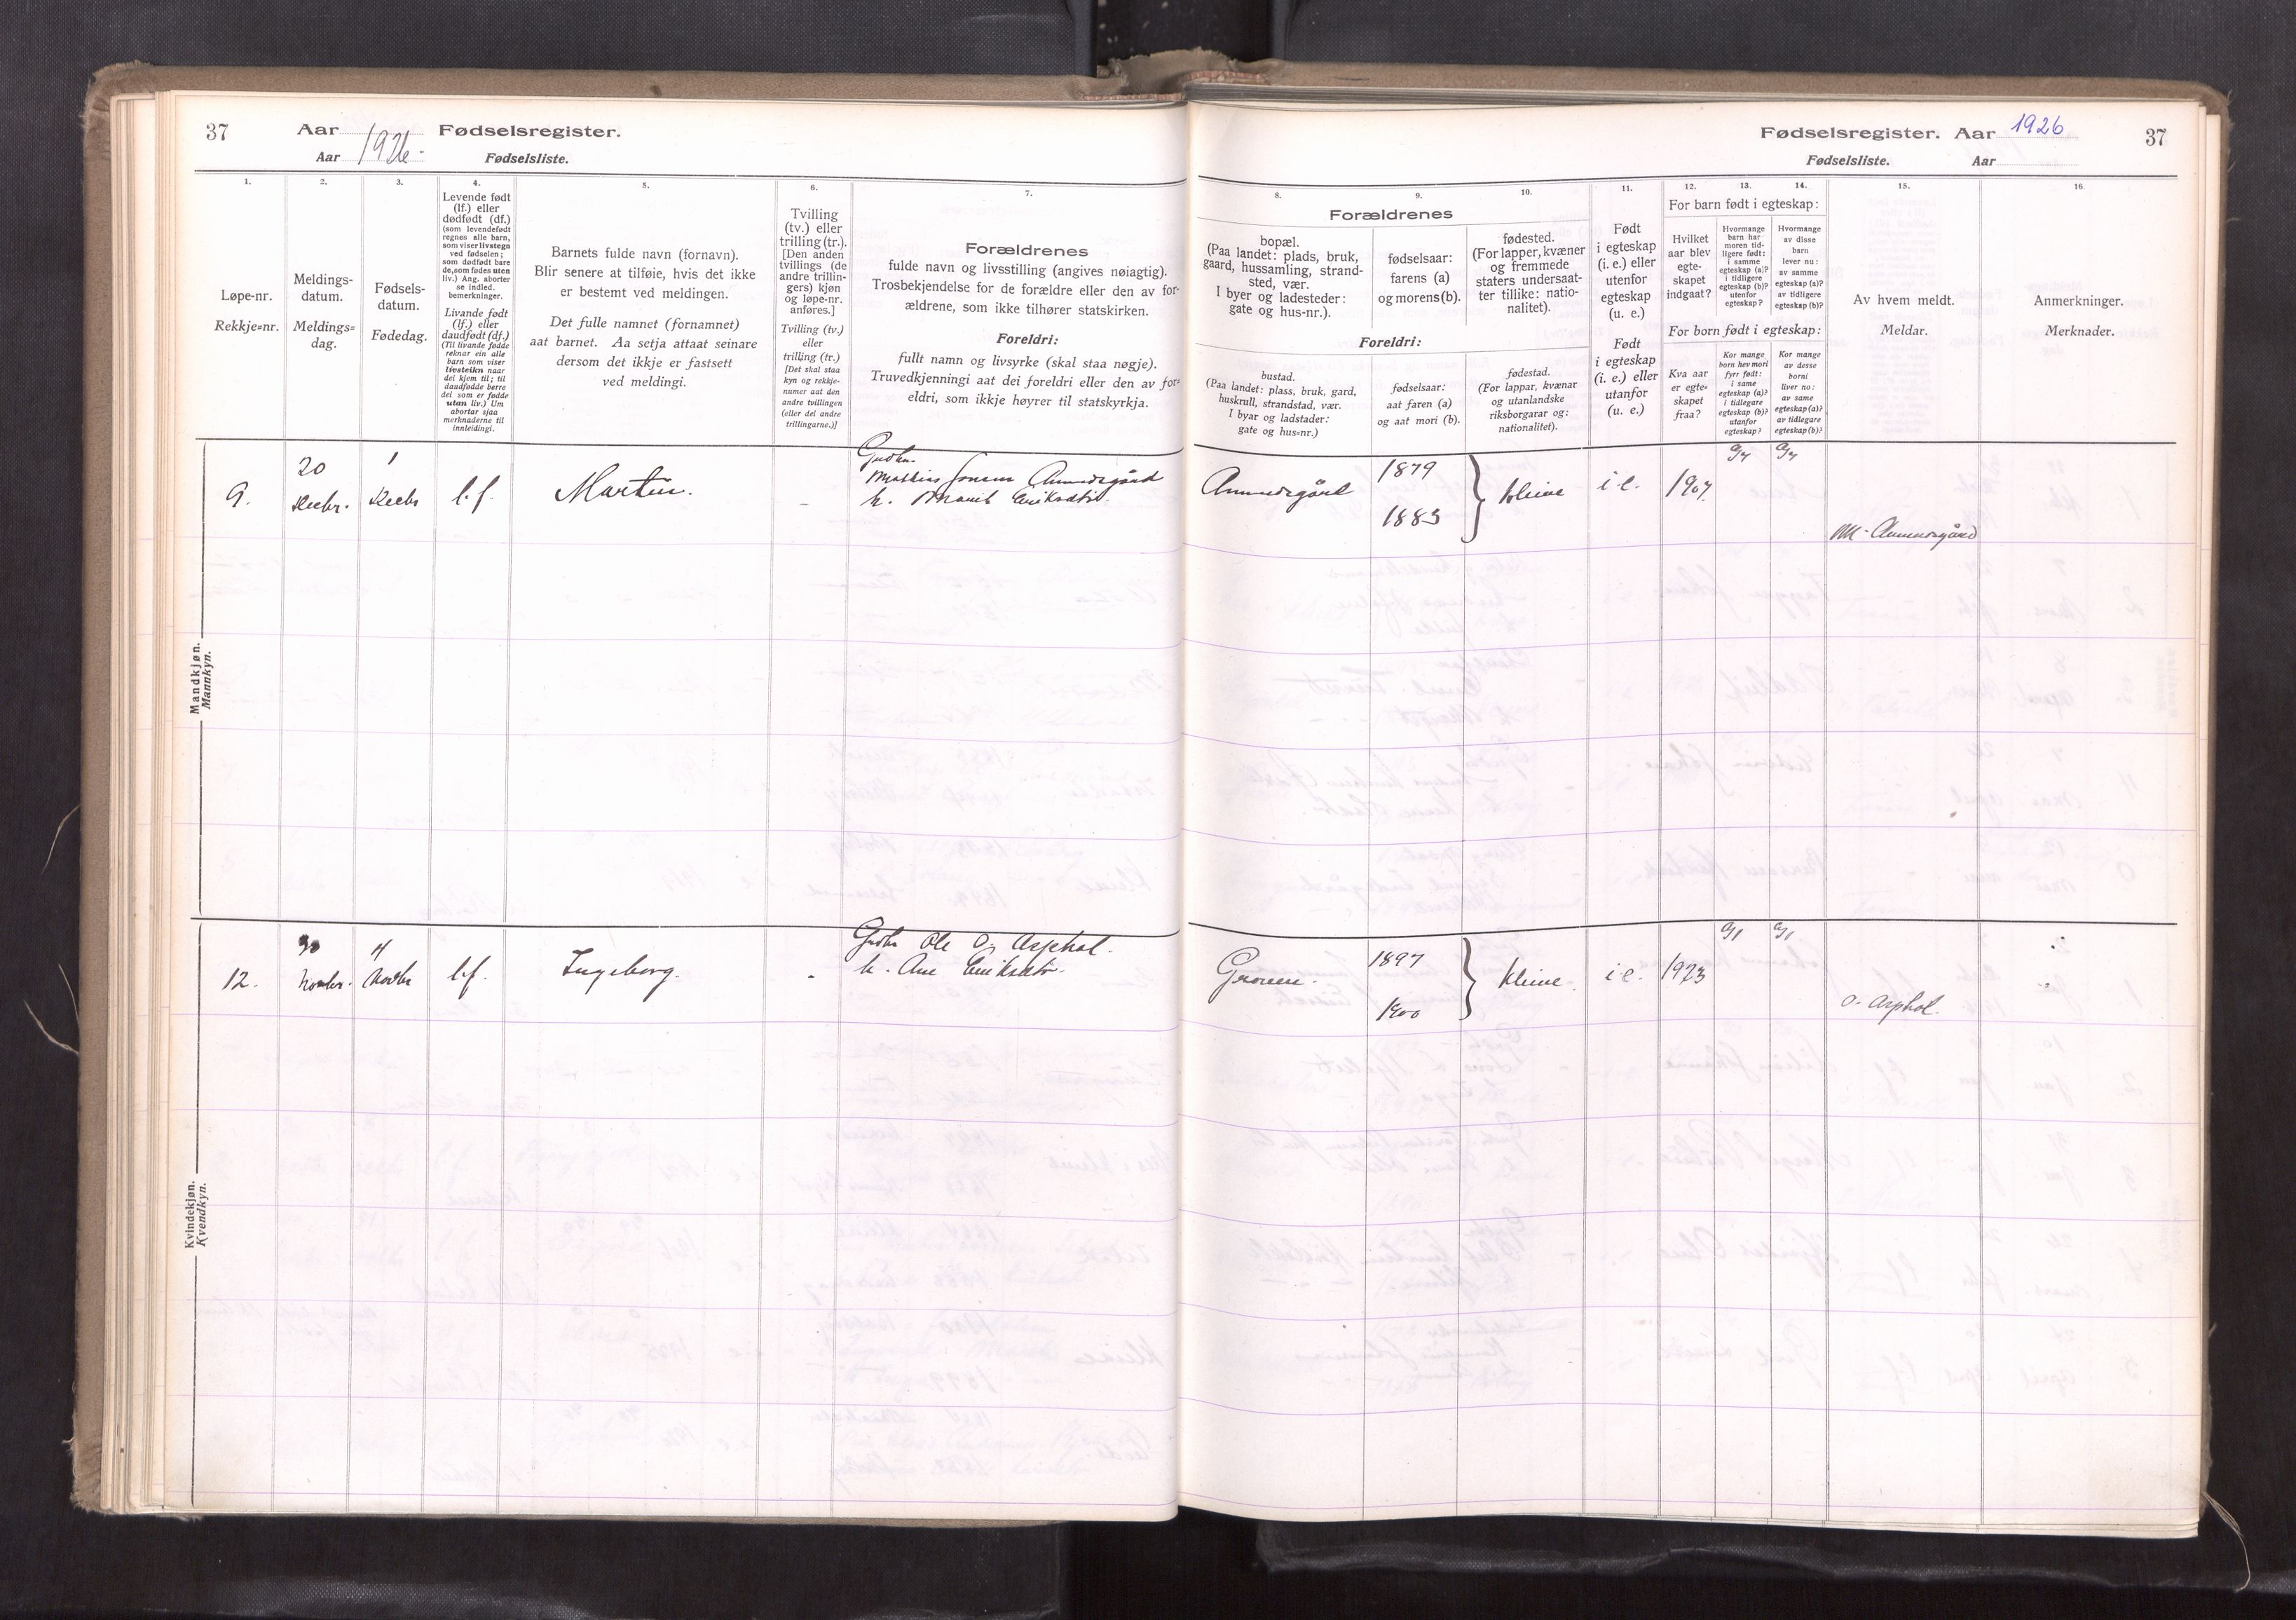 37 Aar 1926. Fødselsregister.
Aar Fødselsliste.
1.
Løpe-nr.
Rekkje=nr.
2.
Meldings-
datum.
Meldings=
dag.
3.
Fødsels-
datum.
Fødedag.
4.
Levende født
(lf.) eller
dødfødt (df.)
(som levendefødt
regnes alle barn,
som viser livstegn
ved fødselen;
som dødfødt bare
de, som fødes uten
liv.) Ang. aborter
se indled.
bemerkninger.
Livande født
(lf.) eller
daudfødt (df.)
(Til livande fødde
reknar ein alle
barn som viser
livsteikn naar
dei kjem til; til
daudfødde berre
dei som er fødde
utan liv.) Um
abortar sjaa
merknaderne til
innleidingi.
5.
Barnets fulde navn (fornavn).
Blir senere at tilføie, hvis det ikke
er bestemt ved meldingen.
Det fulle namnet (fornamnet)
aat barnet. Aa setja attaat seinare
dersom det ikkje er fastsett
ved meldingi.
6.
Tvilling
(tv.) eller
trilling (tr.).
[Den anden
tvillings (de
andre trillin-
gers) kjøn
og løpe-nr.
anføres.]
Tvilling (tv.)
eller
trilling (tr.)
[Det skal staa
kyn og rekkje-
numer aat den
andre tvillingen
(eller dei andre
trillingarne.)]
7.
Forældrenes
fulde navn og livsstilling (angives nøiagtig).
Trosbekjendelse for de forældre eller den av for-
ældrene, som ikke tilhører statskirken.
Foreldri:
fullt namn og livsyrke (skal staa nøgje).
Truvedkjenningi aat dei foreldri eller den av for-
eldri, som ikkje høyrer til statskyrkja.
Mandkjøn.
Mannkyn.
9.
20
Decbr.
1
Decbr
l.f.
Martin.
Gudbr.
Mathias Jonsen Amundsgård
h. Marit Eriksdtr.
Kvindekjøn.
Kvendkyn.
12.
30
Novbr.
4
Novbr
l.f.
Ingeborg.
Gudbr Ole O. Asphol.
h. Ane Eriksdtr.
Fødselsregister. Aar 1926 37
Fødselsliste. Aar
8.
9.
10.
Forældrenes
bopæl.
(Paa landet: plads, bruk,
gaard, hussamling, strand-
sted, vær.
I byer og ladesteder:
gate og hus-nr.).
fødselsaar:
farens (a)
og morens (b).
fødested.
(For lapper, kvæner
og fremmede
staters undersaat-
ter tillike: natio-
nalitet).
Foreldri:
bustad.
(Paa landet: plass, bruk, gard,
huskrull, strandstad, vær.
I byar og ladstader:
gate og hus=nr.)
fødselsaar:
aat faren (a)
og aat mori (b).
fødestad.
(For lappar, kvænar
og utanlandske
riksborgarar og:
nationalitet).
11.
Født
i egteskap
(i. e.) eller
utenfor
egteskap
(u. e.)
Født
i egteskap
(i. e.) eller
utanfor
(u. e.)
12.
13.
14.
For barn født i egteskap:
Hvilket
aar blev
egte-
skapet
indgaat?
Hvormange
barn har
moren tid-
ligere født:
i samme
egteskap (a)?
i tidligere
egteskap (b)?
utenfor
egteskap?
Hvormange
av disse
barn
lever nu:
av samme
egteskap (a)?
av tidligere
egteskap (b)?
For born født i egteskap:
Kva aar
er egte=
skapet
fraa?
Kor mange
born hev mori
fyrr født:
i same
egteskap (a)?
i tidlegare
egteskap (b)?
utanfor
egteskap?
Kor mange
av desse
borni
liver no:
av same
egteskap (a)?
av tidlegare
egteskap (b)?
15.
Av hvem meldt.
Meldar.
16.
Anmerkninger.
Merknader.
Amundsgård
1879
1883
Kleive
i.e.
1907.
a/7
a/7
M. Amundsgård
Groven.
1897
1900
Kleive.
i.e.
1923
a/1
a/1
O. Asphol.